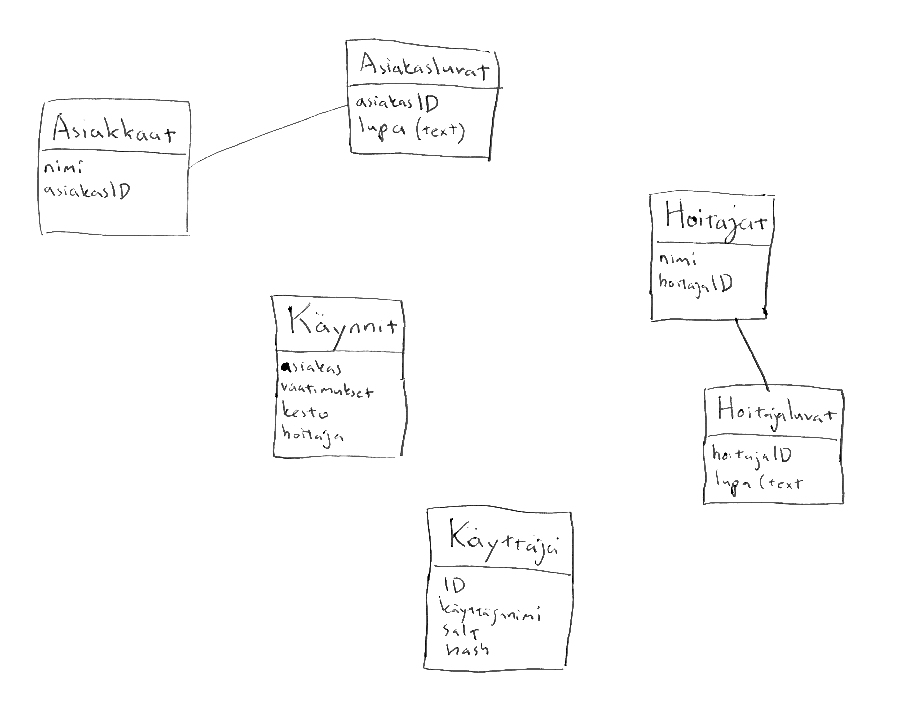 Asiakasluvat
asiakasID
lupa (text)
Asiakkaat
nimi
asiakasID
Hoitajat
nimi
hoitajaID
Käynnit
asiakas
vaatimukset
kesto
hoitaja
Hoitajaluvat
hoitajaID
lupa (text
Käyttäjä
ID
käyttäjänimi
salt
hash